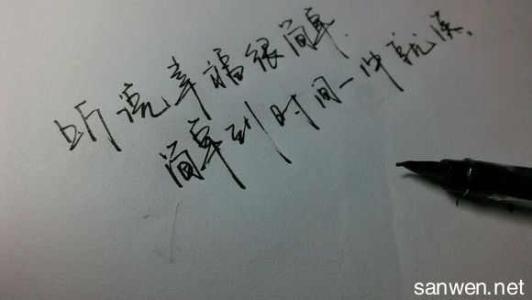 听说幸福很简单.
简单到时间一冲就淡.
sanwen.net